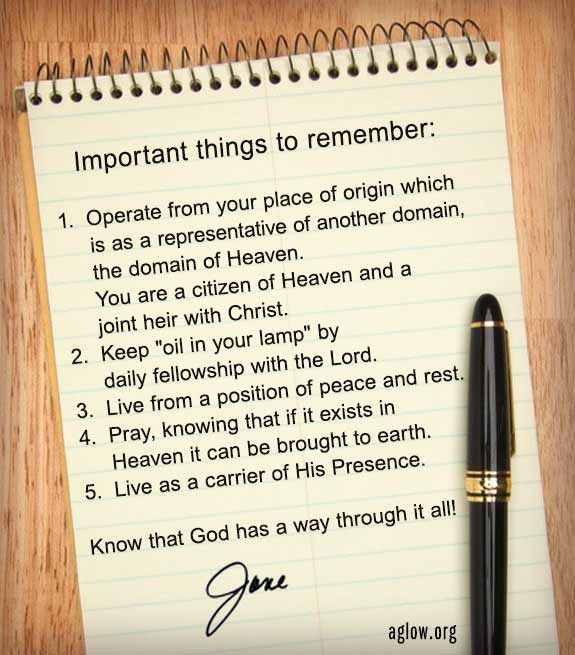 Important things to remember:
1. Operate from your place of origin which
is as a representative of another domain,
the domain of Heaven.
You are a citizen of Heaven and a
joint heir with Christ.
2. Keep "oil in your lamp" by
daily fellowship with the Lord.
3. Live from a position of peace and rest.
4. Pray, knowing that if it exists in
Heaven it can be brought to earth.
5. Live as a carrier of His Presence.
Know that God has a way through it all!
Jane
aglow.org